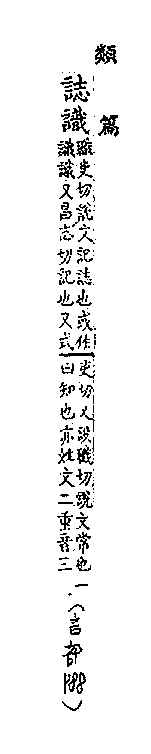 類篇
誌識
職吏切說文記誌也或作
識識又昌志切記也又式
吏切又設職切說文常也一
曰知也亦姓文二重音三
(言部188)